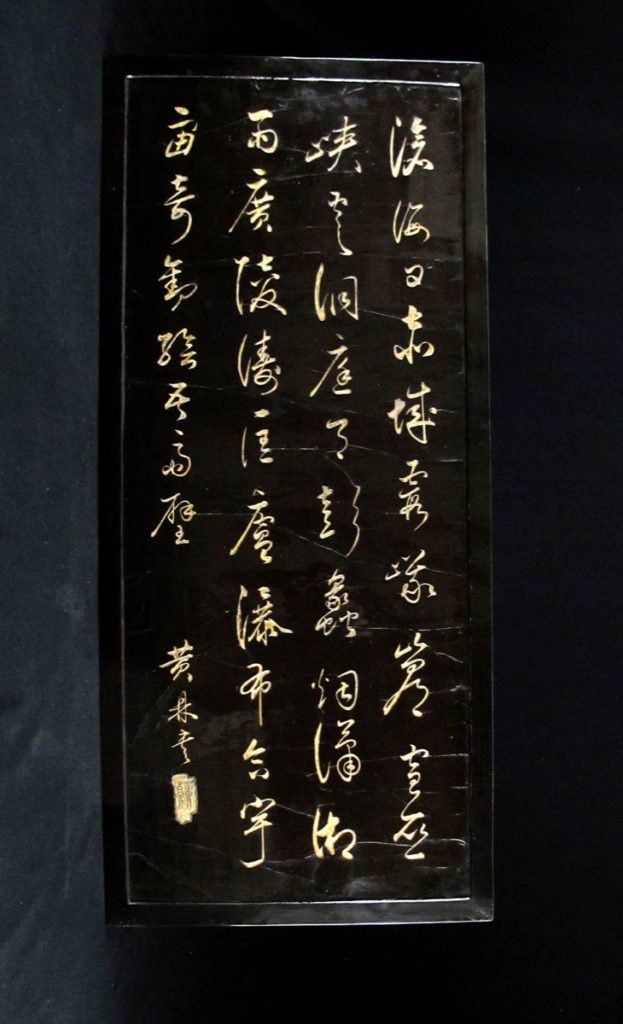 滄海日赤城霞峨嵋雪巫
峽雲洞庭月彭蠡烟瀟湘
雨廣陵濤匡廬瀑布合宇
宙奇觀繪吾齋壁
黃